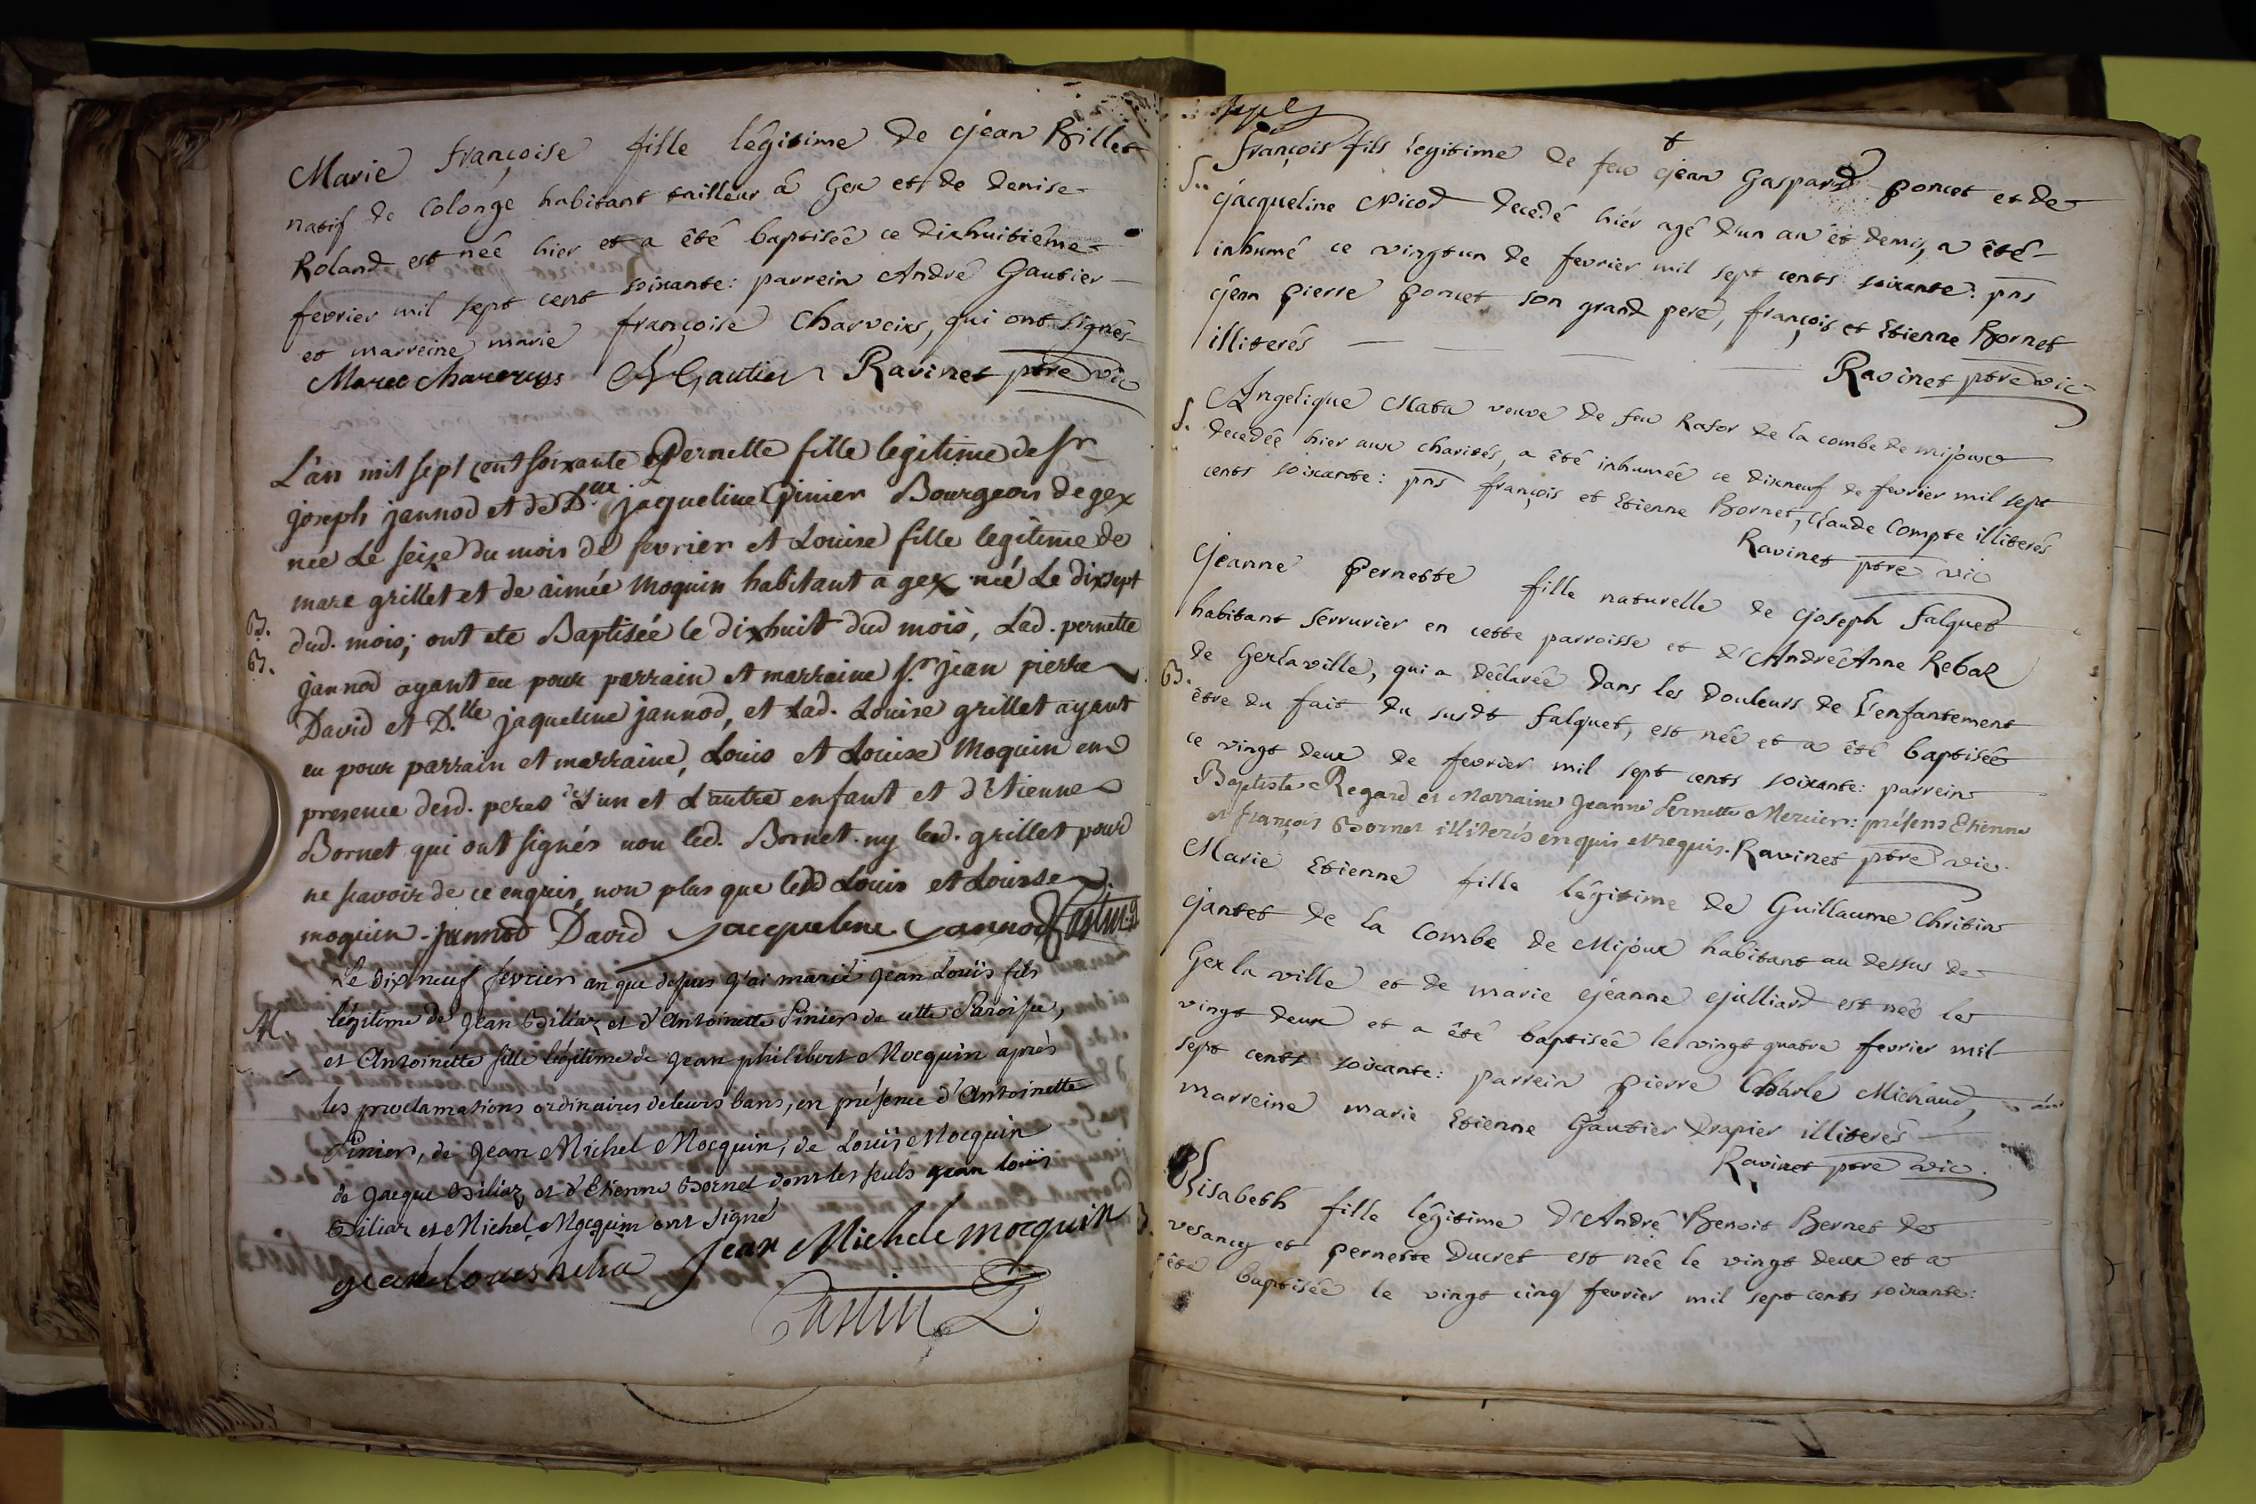 Marie françoise fille légitime de jean Billet
natif de Colonge habitant tailleur à Gex et de denise
Roland est née hier et a êté baptisée ce dixhuitiéme
fevrier mil sept cent soixante: parrein André Gautier
et marreine marie françoise Charveirs, qui ont signés
A Gautier Ravinet ptre vic
L'an mil sept cent soixante Pernette fille legitime de Sr
joseph jannod et de Dlle jaqueline pinier Bourgeois de gex
née le seize du mois de fevrier et Louise fille legitime de
marc grillet et de aimée moquin habitant a gex née Le dixsept
B. dud. mois; ont ete Baptisée le dixhuit dud mois, Lad. pernette
B. jannod ayant eu pour parrain et marraine Sr jean pierre
David et D.lle jaqueline jannod, et Lad. Louise grillet ayant
eu pour parrain et marraine, Louis et Louise Moquin en
presence desd. peres de L'un et L'autre enfant et d'Etienne
Bornet qui ont signés non led. Bornet ny led. grillet pour
ne scavoir de ce enquis, non plus que lesd Louis et Louise
moquin. jannod David jacqueline jannod Castin
Le dix neuf fevrier an que dessus j'ai marié jean Louis fils
M. légitime de jean Biliaz et d'Antoinette Pinier de cette Paroisse,
et Antoinette fille légitime de jean philibert Mocquin après
les proclamations ordinaires de leurs bans, en présence d'Antoinette
Pinier, de jean Michel Mocquin, de Louis Mocquin
de jacque Biliaz et d'Etienne Bornet dont les seuls jean louis
Biliaz et Michel Mocquin ont signé
jean louis jean Michele mocquin
Castin
S. François fils legitime de feu jean Gaspard poncet et de
jacqueline Nicod decedé hier agé d'un an et demi, a êté
inhumé ce vingtun de fevrier mil sept cents soixante: pns
jean pierre poncet son grand pere, françois et Etienne Bornet
illiterés
Ravinet ptre vic
S. Angelique Mata veuve de feu Rasor de la combe de mijoux
decedée hier aux charités, a êté inhumée ce dixneuf de fevrier mil sept
cents soixante: pns françois et Etienne Bornet, Claude Compte illiterés
Ravinet ptre vic
jeanne pernette fille naturelle de joseph falquet
habitant serrurier en cette parroisse et d'Andrée Anne Rebah
B. de Gexlaville, qui a déclarée dans les douleurs de l'enfantement
être du fait du susdt falquet, est née et a êté baptisée
ce vingt deux de fevrier mil sept cents soixante: parrein
Baptiste Regard et Marraine jeanne Pernette Mercier: présens Etienne
et françois Bornet illiterés enquis et requis. Ravinet ptre vic.
Marie Etienne fille légitime de Guillaume Christin
jantet de la Combe de Mijoux habitant au dessus de
Gex la ville et de marie jeanne julliard est née le
vingt deux et a êté baptisée le vingt quatre fevrier mil
sept cents soixante: parrein pierre Charle Michaud,
marreine marie Etienne Gautier drapier illiterés
Ravinet ptre vic.
Elisabeth fille légitime d'André Benoit Bernet de
B. vesancy et pernette Ducret est née le vingt deux et a
êté baptisée le vingt cinq fevrier mil sept cents soixante: